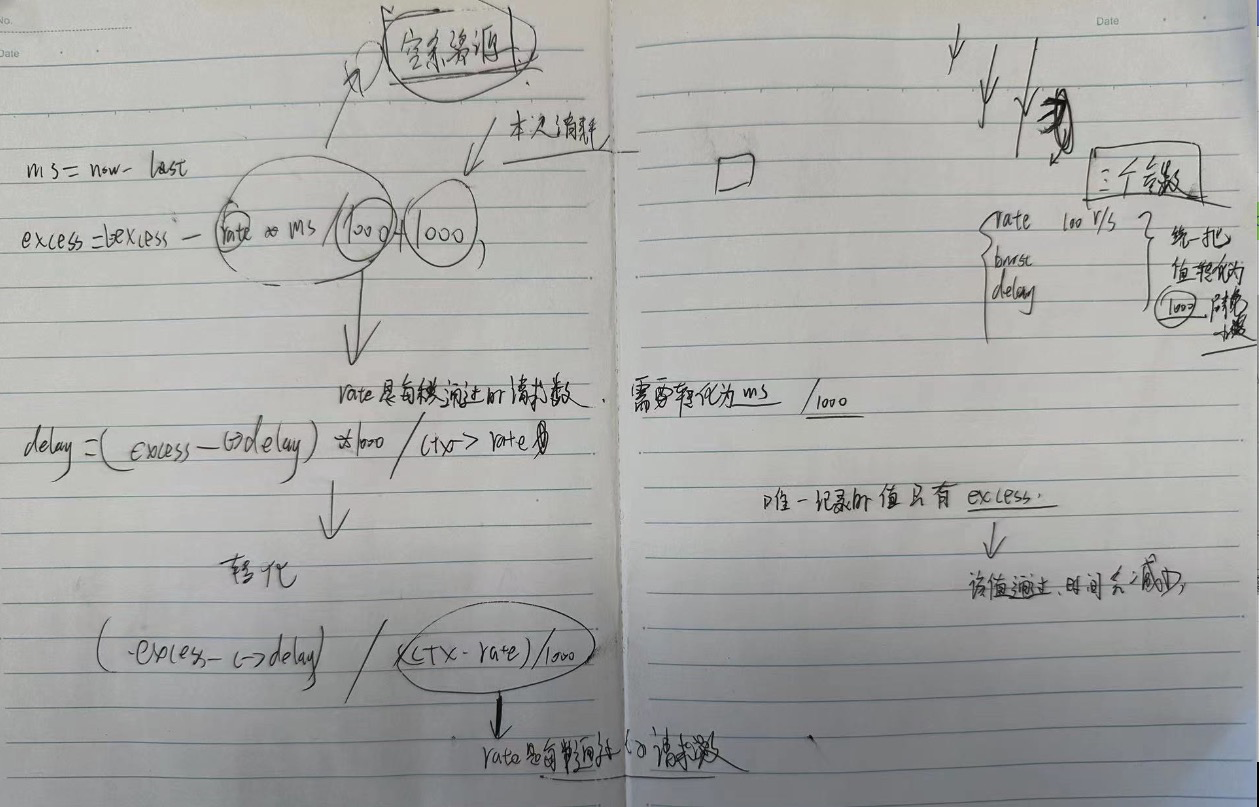 No.
Date
本次消耗
ms = now - last
excess = excess - rate * ms / 1000 + 1000,
rate是每秒通过的请求数. 需要转化为ms /1000
delay = (excess - ->delay) *1000 / ctx-> rate
转化
(excess - ->delay) / (ctx - rate)/1000
rate是每秒通过的请求数
Date
三个参数
rate 100 r/s
burst
delay
统一把
值转化为
1000
唯一纪录的值只有 excess.
该值通过时间会减少,